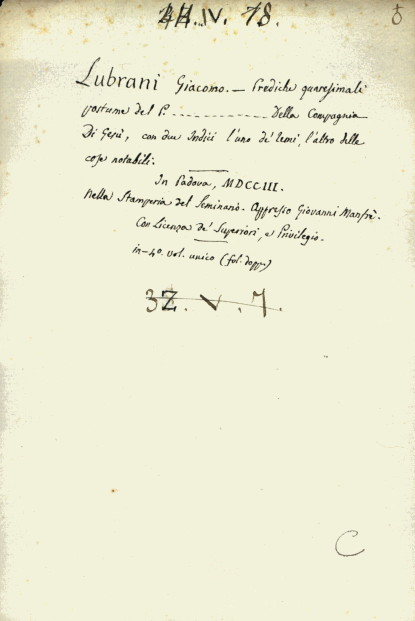 IV. 78.
Lubrani Giacomo. — Prediche quaresimali
postume del P. ------------ Della Compagnia
Di Gesù, con due Indici l'uno de' temi, l'altro delle
cose notabili.
In Padova, MDCCIII.
Nella Stamperia del Seminario. Appresso Giovanni Manfrè.
Con Licenza de' Superiori, e Privilegio.
in-4°. vol. unico (fol. dopp.)
3Z. V. 7.
C